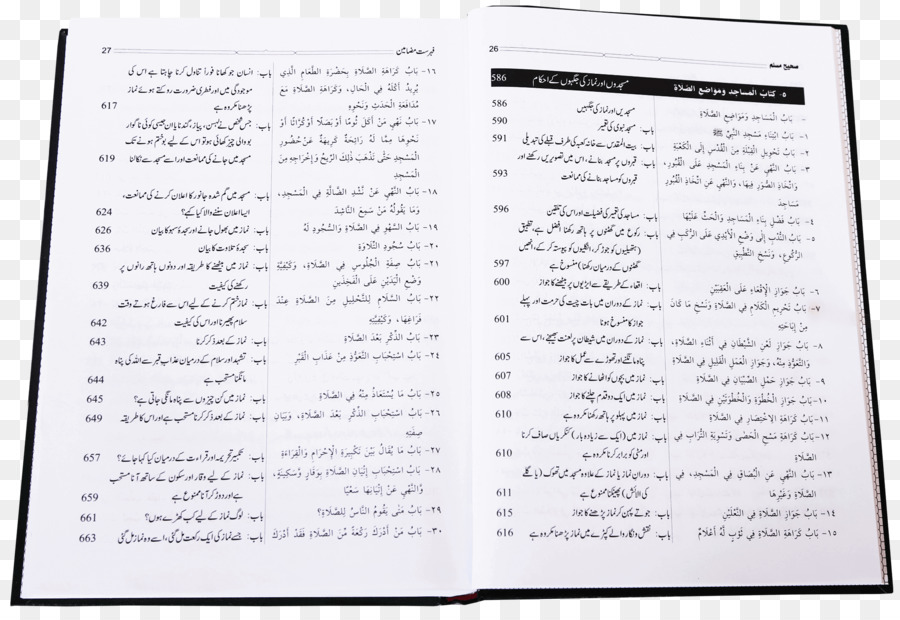 26
صحیح مسلم
٥- كتاب المساجد ومواضع الصلاة
مسجدوں اور نماز کی جگہوں کے احکام 586
- بَابُ الْمَسَاجِدِ وَمَوَاضِعِ الصَّلَاةِ
باب: مسجدیں اور نماز کی جگہیں 586
١- بَابُ ابْتِنَاءِ مَسْجِدِ النَّبِيِّ ﷺ
باب: مسجد نبوی کی تعمیر 590
٢- بَابُ تَحْوِيلِ الْقِبْلَةِ مِنَ الْقُدْسِ إِلَى الْكَعْبَةِ
باب: بیت المقدس سے خانہ کعبہ کی طرف قبلے کی تبدیلی 591
٣- بَابُ النَّهْيِ عَنْ بِنَاءِ الْمَسْجِدِ عَلَى الْقُبُورِ،
باب: قبروں پر مسجد بنانے، اس میں تصویریں رکھنے اور
وَاتِّخَاذِ الصُّوَرِ فِيهَا، وَالنَّهْيِ عَنِ اتِّخَاذِ الْقُبُورِ
قبروں کو مساجد بنانے کی ممانعت 593
مَسَاجِدَ
٤- بَابُ فَضْلِ بِنَاءِ الْمَسَاجِدِ وَالْحَثِّ عَلَيْهَا
باب: مساجد کی تعمیر کی فضیلت اور اس کی تلقین 596
٥- بَابُ النَّدْبِ إِلَى وَضْعِ الْأَيْدِي عَلَى الرُّكَبِ فِي
باب: رکوع میں گھٹنوں پر ہاتھ رکھنا افضل ہے، تطبیق
الرُّكُوعِ، وَنَسْخِ التَّطْبِيقِ
(ہتھیلیوں کو جوڑ کر، انگلیوں کو پیوستہ کر کے، انھیں
گھٹنوں کے درمیان رکھنا) منسوخ ہے 597
٦- بَابُ جَوَازِ الْإِقْعَاءِ عَلَى الْعَقِبَيْنِ
باب: اقعاء کے طریقے سے ایڑیوں پر بیٹھنے کا جواز 600
٧- بَابُ تَحْرِيمِ الْكَلَامِ فِي الصَّلَاةِ وَنَسْخِ مَا كَانَ
باب: نماز کے دوران میں بات چیت کی حرمت اور پہلے
مِنْ إِبَاحَتِهِ
جواز کا منسوخ ہونا 601
٨- بَابُ جَوَازِ لَعْنِ الشَّيْطَانِ فِي أَثْنَاءِ الصَّلَاةِ
باب: نماز کے دوران میں شیطان پر لعنت بھیجنے، اس سے
وَالتَّعَوُّذِ مِنْهُ، وَجَوَازِ الْعَمَلِ الْقَلِيلِ فِي الصَّلَاةِ
پناہ مانگنے اور تھوڑے سے عمل کا جواز 605
٩- بَابُ جَوَازِ حَمْلِ الصِّبْيَانِ فِي الصَّلَاةِ
باب: نماز میں بچوں کو اٹھانے کا جواز 607
١٠- بَابُ جَوَازِ الْخُطْوَةِ وَالْخُطْوَتَيْنِ فِي الصَّلَاةِ
باب: نماز میں ایک دو قدم چلنے کا جواز 608
١١- بَابُ كَرَاهَةِ الِاخْتِصَارِ فِي الصَّلَاةِ
باب: نماز میں پہلو پر ہاتھ رکھنا مکروہ ہے 610
١٢- بَابُ كَرَاهَةِ مَسْحِ الْحَصَى وَتَسْوِيَةِ التُّرَابِ فِي
باب: نماز میں (ایک سے زیادہ بار) کنکریاں صاف کرنا
الصَّلَاةِ
اور مٹی کو برابر کرنا مکروہ ہے 610
١٣- بَابُ النَّهْيِ عَنِ الْبُصَاقِ فِي الْمَسْجِدِ، فِي
باب: دوران نماز یا نماز کے علاوہ مسجد میں تھوک (یا گلے
الصَّلَاةِ وَغَيْرِهَا
کی آلائش) پھینکنا ممنوع ہے 611
١٤- بَابُ جَوَازِ الصَّلَاةِ فِي النَّعْلَيْنِ
باب: جوتے پہن کر نماز پڑھنے کا جواز 615
١٥- بَابُ كَرَاهَةِ الصَّلَاةِ فِي ثَوْبٍ لَهُ أَعْلَامٌ
باب: نقش و نگار والے کپڑے میں نماز پڑھنا مکروہ ہے 616
فہرست مضامین
27
١٦- بَابُ كَرَاهَةِ الصَّلَاةِ بِحَضْرَةِ الطَّعَامِ الَّذِي
باب: انسان جو کھانا فوراً تناول کرنا چاہتا ہے اس کی
يُرِيدُ أَكْلَهُ فِي الْحَالِ، وَكَرَاهَةِ الصَّلَاةِ مَعَ
موجودگی میں اور فطری ضرورت روکتے ہوئے نماز
مُدَافَعَةِ الْحَدَثِ وَنَحْوِهِ
پڑھنا مکروہ ہے 617
١٧- بَابُ نَهْيِ مَنْ أَكَلَ ثُومًا أَوْ بَصَلًا أَوْ كُرَّاثًا أَوْ
باب: جس شخص نے لہسن، پیاز، گندنا یا ان جیسی کوئی ناگوار
نَحْوَهَا مِمَّا لَهُ رَائِحَةٌ كَرِيهَةٌ عَنْ حُضُورِ
بو والی چیز کھائی ہو تو اس کے لیے بو ختم ہونے تک
الْمَسْجِدِ حَتَّى تَذْهَبَ ذٰلِكَ الرِّيحُ وَإِخْرَاجِهِ مِنَ
مسجد میں جانے کی ممانعت اور اسے مسجد سے نکالنا 619
الْمَسْجِدِ
١٨- بَابُ النَّهْيِ عَنْ نَشْدِ الضَّالَّةِ فِي الْمَسْجِدِ،
باب: مسجد میں گم شدہ جانور کا اعلان کرنے کی ممانعت،
وَمَا يَقُولُهُ مَنْ سَمِعَ النَّاشِدَ
ایسا اعلان سننے والا کیا کہے؟ 624
١٩- بَابُ السَّهْوِ فِي الصَّلَاةِ وَالسُّجُودِ لَهُ
باب: نماز میں بھول جانے اور سجدۂ سہو کا بیان 626
٢٠- بَابُ سُجُودِ التِّلَاوَةِ
باب: سجدۂ تلاوت کا بیان 636
٢١- بَابُ صِفَةِ الْجُلُوسِ فِي الصَّلَاةِ، وَكَيْفِيَّةِ
باب: نماز میں بیٹھنے کا طریقہ اور دونوں ہاتھ رانوں پر
وَضْعِ الْيَدَيْنِ عَلَى الْفَخِذَيْنِ
رکھنے کی کیفیت 639
٢٢- بَابُ السَّلَامِ لِلتَّحْلِيلِ مِنَ الصَّلَاةِ عِنْدَ
باب: نماز ختم کرنے کے لیے اس سے فارغ ہوتے وقت
فَرَاغِهَا، وَكَيْفِيَّتِهِ
سلام پھیرنا اور اس کی کیفیت 642
٢٣- بَابُ الذِّكْرِ بَعْدَ الصَّلَاةِ
باب: نماز کے بعد ذکر کرنا 643
٢٤- بَابُ اسْتِحْبَابِ التَّعَوُّذِ مِنْ عَذَابِ الْقَبْرِ
باب: تشہد اور سلام کے درمیان عذاب قبر سے اللہ کی پناہ
مانگنا مستحب ہے 644
٢٥- بَابُ مَا يُسْتَعَاذُ مِنْهُ فِي الصَّلَاةِ
باب: نماز میں کن چیزوں سے پناہ مانگی جاتی ہے؟ 645
٢٦- بَابُ اسْتِحْبَابِ الذِّكْرِ بَعْدَ الصَّلَاةِ، وَبَيَانِ
باب: نماز کے بعد ذکر کرنا مستحب ہے اور اس کا طریقہ 649
صِفَتِهِ
٢٧- بَابُ مَا يُقَالُ بَيْنَ تَكْبِيرَةِ الْإِحْرَامِ وَالْقِرَاءَةِ
باب: تکبیر تحریمہ اور قراءت کے درمیان کیا کہا جائے؟ 657
٢٨- بَابُ اسْتِحْبَابِ إِتْيَانِ الصَّلَاةِ بِوَقَارٍ وَسَكِينَةٍ،
باب: نماز کے لیے وقار اور سکون کے ساتھ آنا مستحب
وَالنَّهْيِ عَنْ إِتْيَانِهَا سَعْيًا
ہے اور دوڑ کر آنا ممنوع ہے 659
٢٩- بَابُ مَتَى يَقُومُ النَّاسُ لِلصَّلَاةِ؟
باب: لوگ نماز کے لیے کب کھڑے ہوں؟ 661
٣٠- بَابُ مَنْ أَدْرَكَ رَكْعَةً مِّنَ الصَّلَاةِ فَقَدْ أَدْرَكَ
باب: جسے نماز کی ایک رکعت مل گئی، اسے وہ نماز مل گئی 663